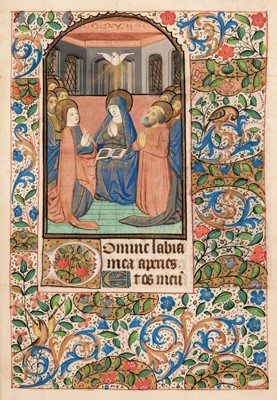 Domine labia
mea apries
Et os meu